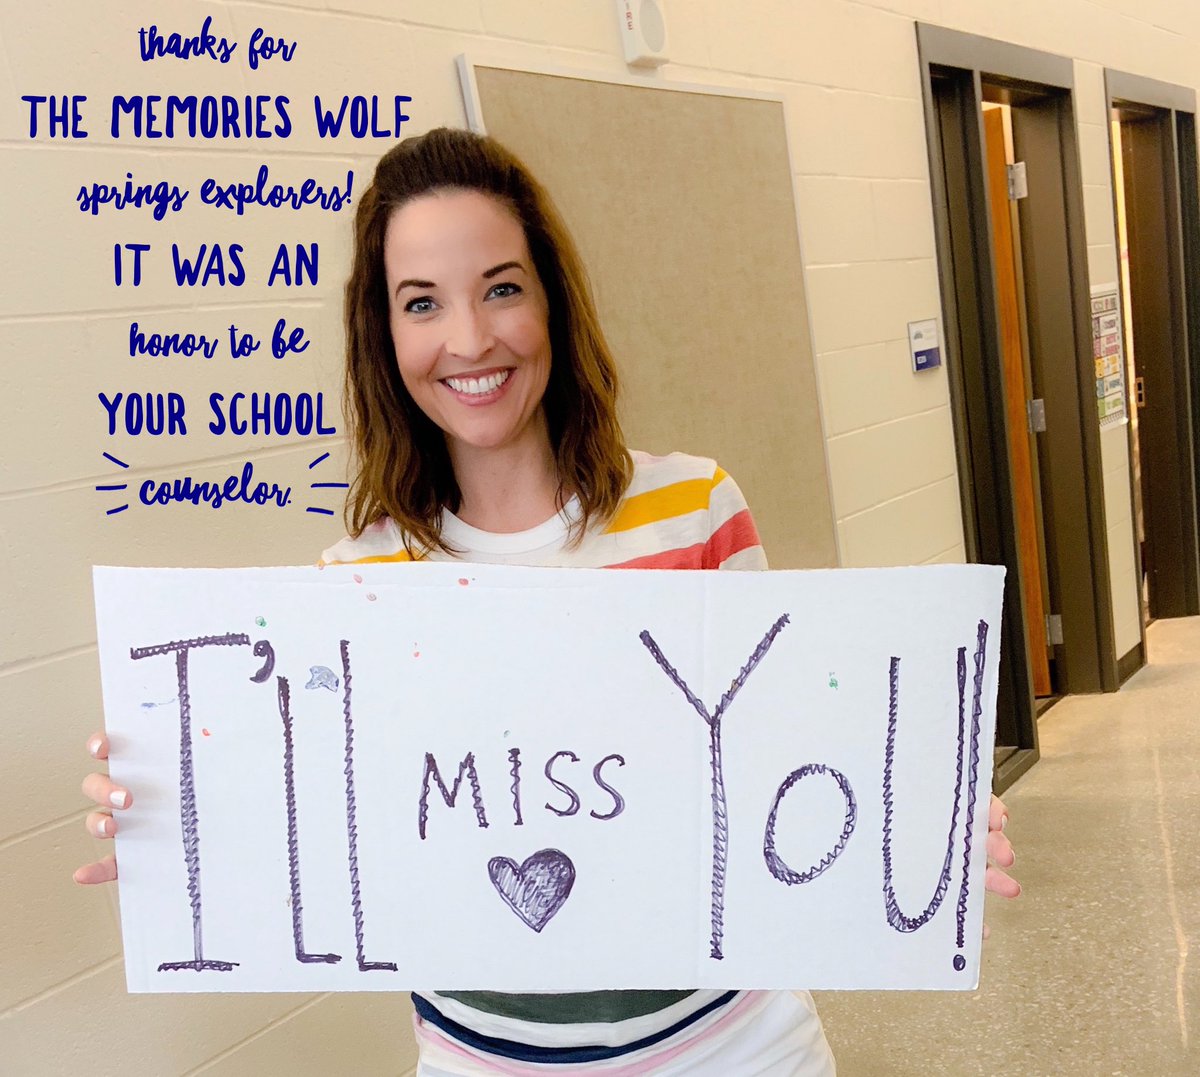 thanks for
THE MEMORIES WOLF
springs explorers!
IT WAS AN
honor to be
YOUR SCHOOL
counselor.
I'll MISS YoU!